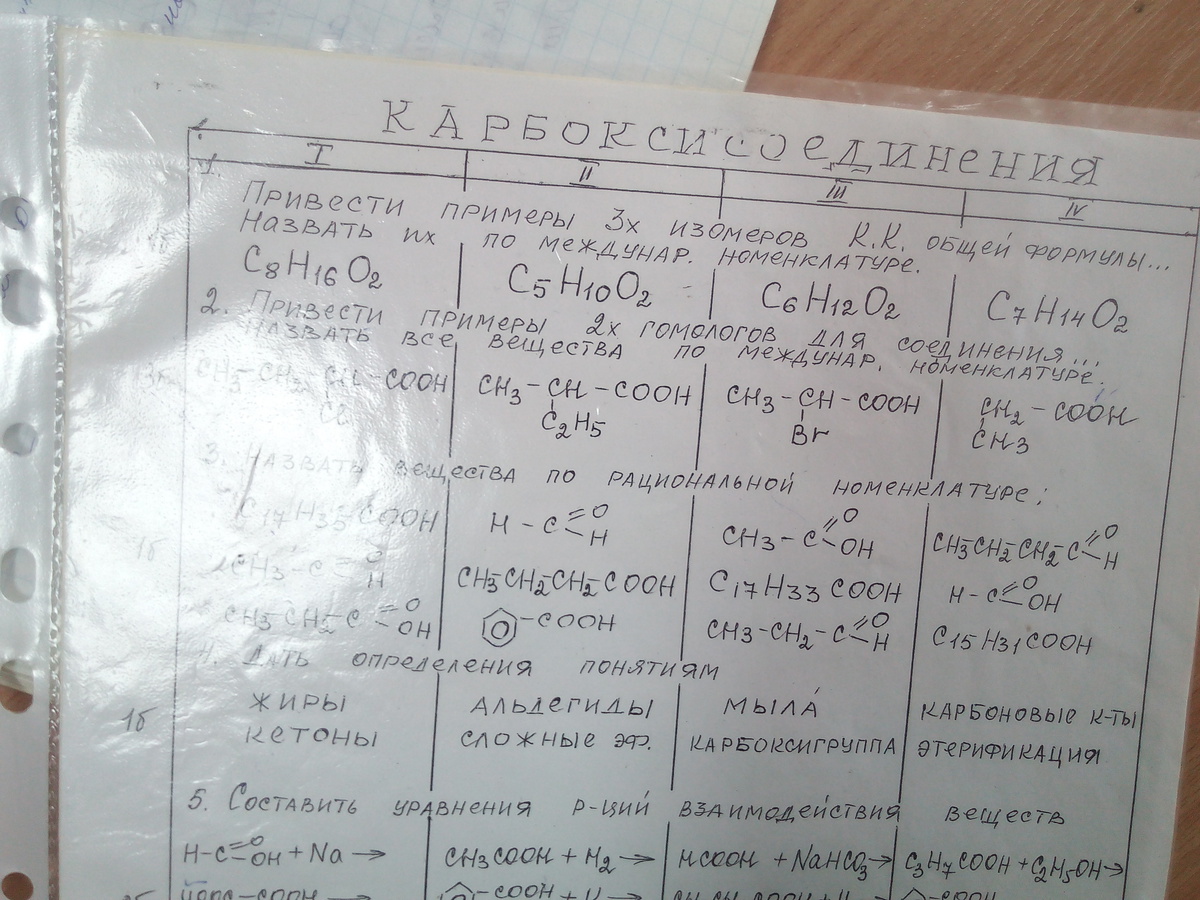 КАРБОКСИСОЕДИНЕНИЯ
I II III IV
1. Привести примеры 3х изомеров К.К. общей формулы...
Назвать их по междунар. номенклатуре.
C8H16O2 C5H10O2 C6H12O2 C7H14O2
2. Привести примеры 2х гомологов для соединения...
Назвать все вещества по междунар. номенклатуре.
CH3-CH2-CH-COOH CH3-CH-COOH CH3-CH-COOH CH2-COOH
C2H5 Br CH3
3. Назвать вещества по рациональной номенклатуре:
C17H35COOH H-C=O H CH3-C=O OH CH3CH2CH2C=O H
1б
CH3-C=O H CH3CH2CH2COOH C17H33COOH H-C=O OH
CH3CH2C=O OH -COOH CH3-CH2-C=O H C15H31COOH
4. Дать определения понятиям
1б
жиры альдегиды мыла́ карбоновые к-ты
кетоны сложные эф. карбоксигруппа этерификация
5. Составить уравнения р-ций взаимодействия веществ
H-C=O OH + Na → CH3COOH + H2 → HCOOH + NaHCO3 → C3H7COOH + C2H5OH →